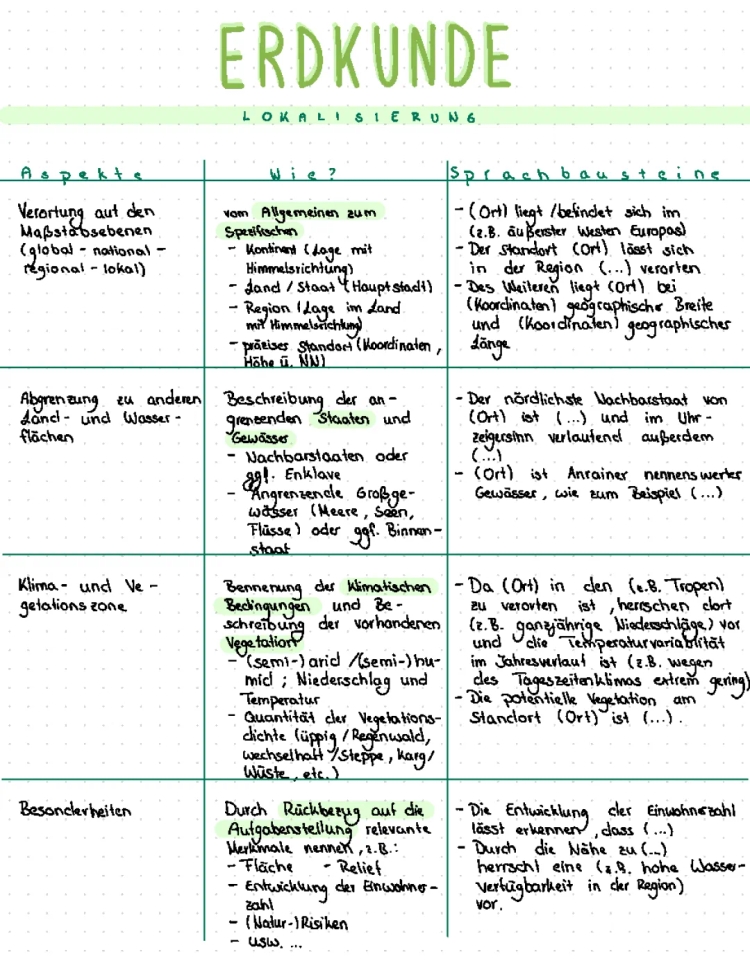 ERDKUNDE
LOKALISIERUNG
Aspekte
Wie?
Sprachbausteine
Verortung auf den
Maßstabsebenen
(global - national -
regional - lokal)
vom Allgemeinen zum
Spezifischen
- Kontinent (Lage mit
Himmelsrichtung)
- Land / Staat (Hauptstadt)
- Region (Lage im Land
mit Himmelsrichtung)
- präziser Standort (Koordinaten,
Höhe ü. NN)
- (Ort) liegt / befindet sich im
(z.B. äußerster Westen Europas)
- Der Standort (Ort) lässt sich
in der Region (...) verorten
- Des Weiteren liegt (Ort) bei
(Koordinaten) geographischer Breite
und (Koordinaten) geographischer
Länge
Abgrenzung zu anderen
Land- und Wasser-
flächen
Beschreibung der an-
grenzenden Staaten und
Gewässer
- Nachbarstaaten oder
ggf. Enklave
- Angrenzende Großge-
wässer (Meere, Seen,
Flüsse) oder ggf. Binnen-
staat
- Der nördlichste Nachbarstaat von
(Ort) ist (...) und im Uhr-
zeigersinn verlaufend außerdem
(...)
- (Ort) ist Anrainer nennenswerter
Gewässer, wie zum Beispiel (...)
Klima- und Ve-
getationszone
Bennenung der klimatischen
Bedingungen und Be-
schreibung der vorhandenen
Vegetation
- (semi-) arid / (semi-) hu-
mid ; Niederschlag und
Temperatur
- Quantität der Vegetations-
dichte (üppig / Regenwald,
wechselhaft / Steppe, karg/
Wüste, etc.)
- Da (Ort) in den (z.B. Tropen)
zu verorten ist, herrschen dort
(z.B. ganzjährige Niederschläge) vor
und die Temperaturvariabilität
im Jahresverlauf ist (z.B. wegen
des Tageszeitenklimas extrem gering)
- Die potentielle Vegetation am
Standort (Ort) ist (...).
Besonderheiten
Durch Rückbezug auf die
Aufgabenstellung relevante
Merkmale nennen, z.B.:
- Fläche - Relief
- Entwicklung der Einwohner-
zahl
- (Natur-) Risiken
- usw. ...
- Die Entwicklung der Einwohnerzahl
lässt erkennen, dass (...)
- Durch die Nähe zu (...)
herrscht eine (z.B. hohe Wasser-
verfügbarkeit in der Region)
vor.